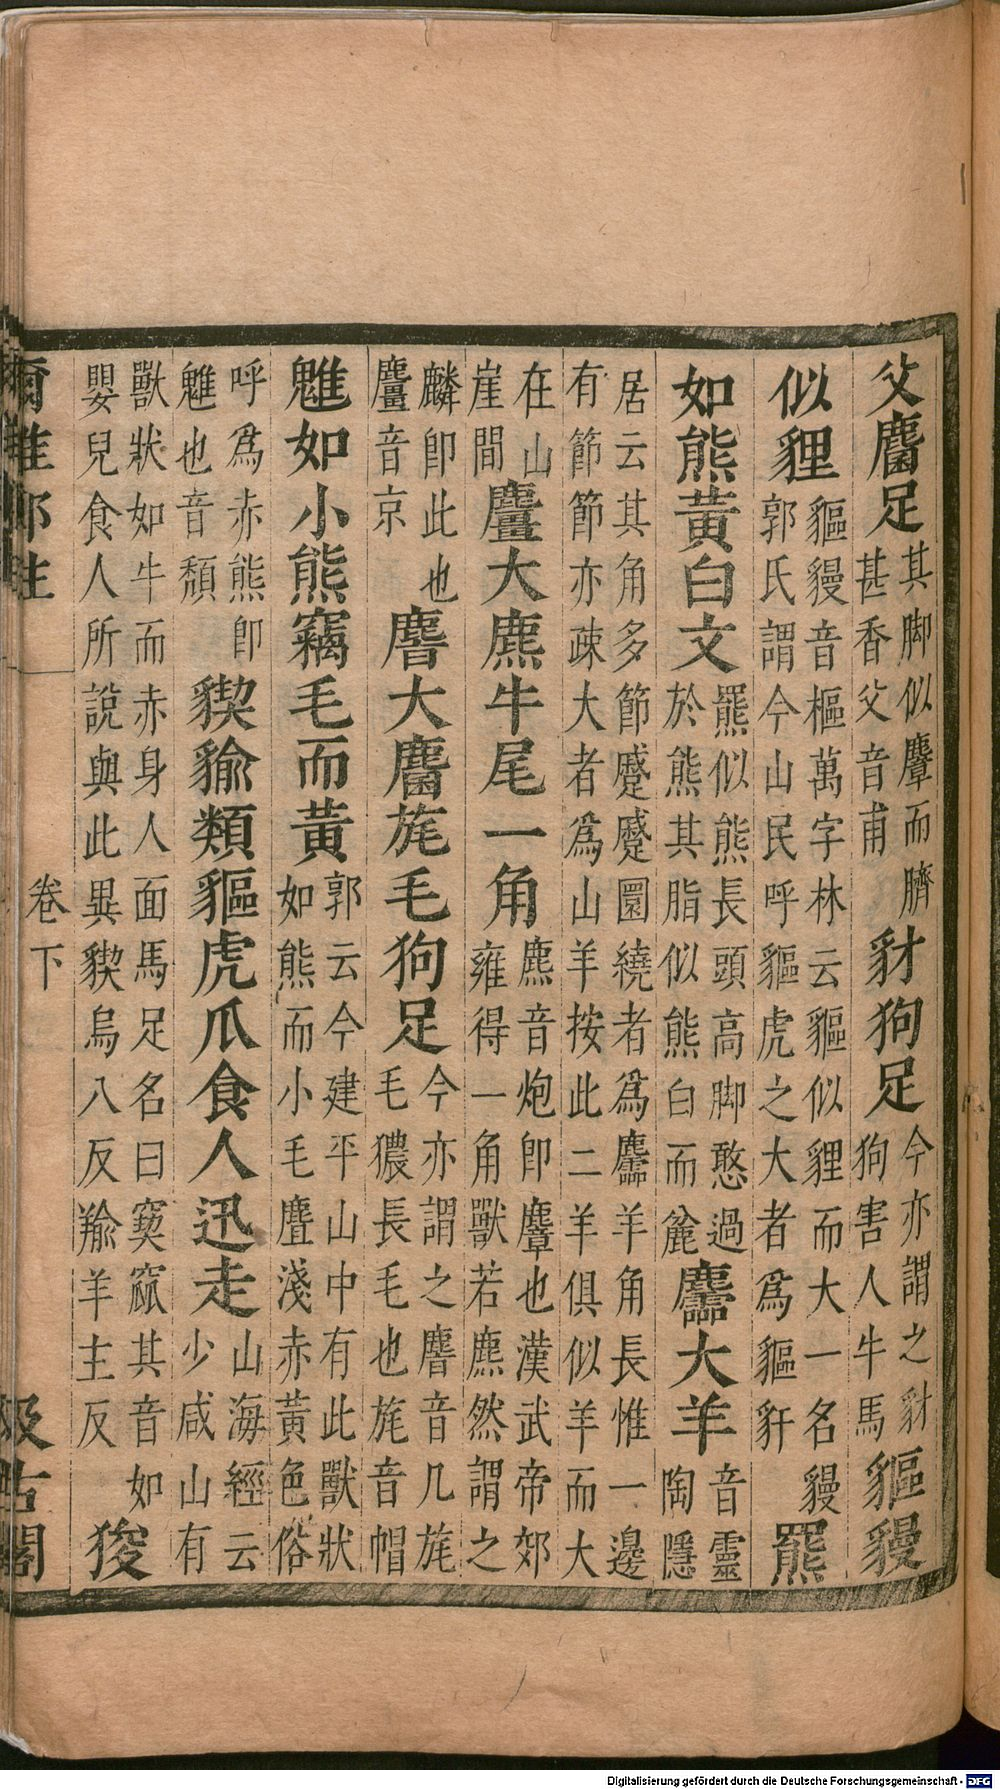 父麕足其脚似麞而臍甚香父音甫豺狗足今亦謂之豺狗害人牛馬貙獌
似貍貙獌音樞萬字林云貙似貍而大一名獌郭氏謂今山民呼貙虎之大者爲貙豻羆
如熊黃白文羆似熊長頭高脚憨過於熊其脂似熊白而麄麢大羊音靈陶隱
居云其角多節蹙蹙圜繞者爲麢羊角長惟一邊有節節亦疎大者爲山羊按此二羊俱似羊而大
在山崖間麠大麃牛尾一角麃音炮卽麞也漢武帝郊雍得一角獸若麃然謂之
麟卽此也麠音京𪊨大麕旄毛狗足今亦謂之𪊨音几旄毛㺜長毛也旄音帽
魋如小熊竊毛而黃郭云今建平山中有此獸狀如熊而小毛麆淺赤黃色俗
呼爲赤熊卽魋也音頹䝟貐類貙虎爪食人迅走山海經云少咸山有
獸狀如牛而赤身人面馬足名曰窫窳其音如嬰兒食人所說與此異䝟烏八反羭羊主反狻
爾雅鄭注 卷下 汲古閣
Digitalisierung gefördert durch die Deutsche Forschungsgemeinschaft - DFG